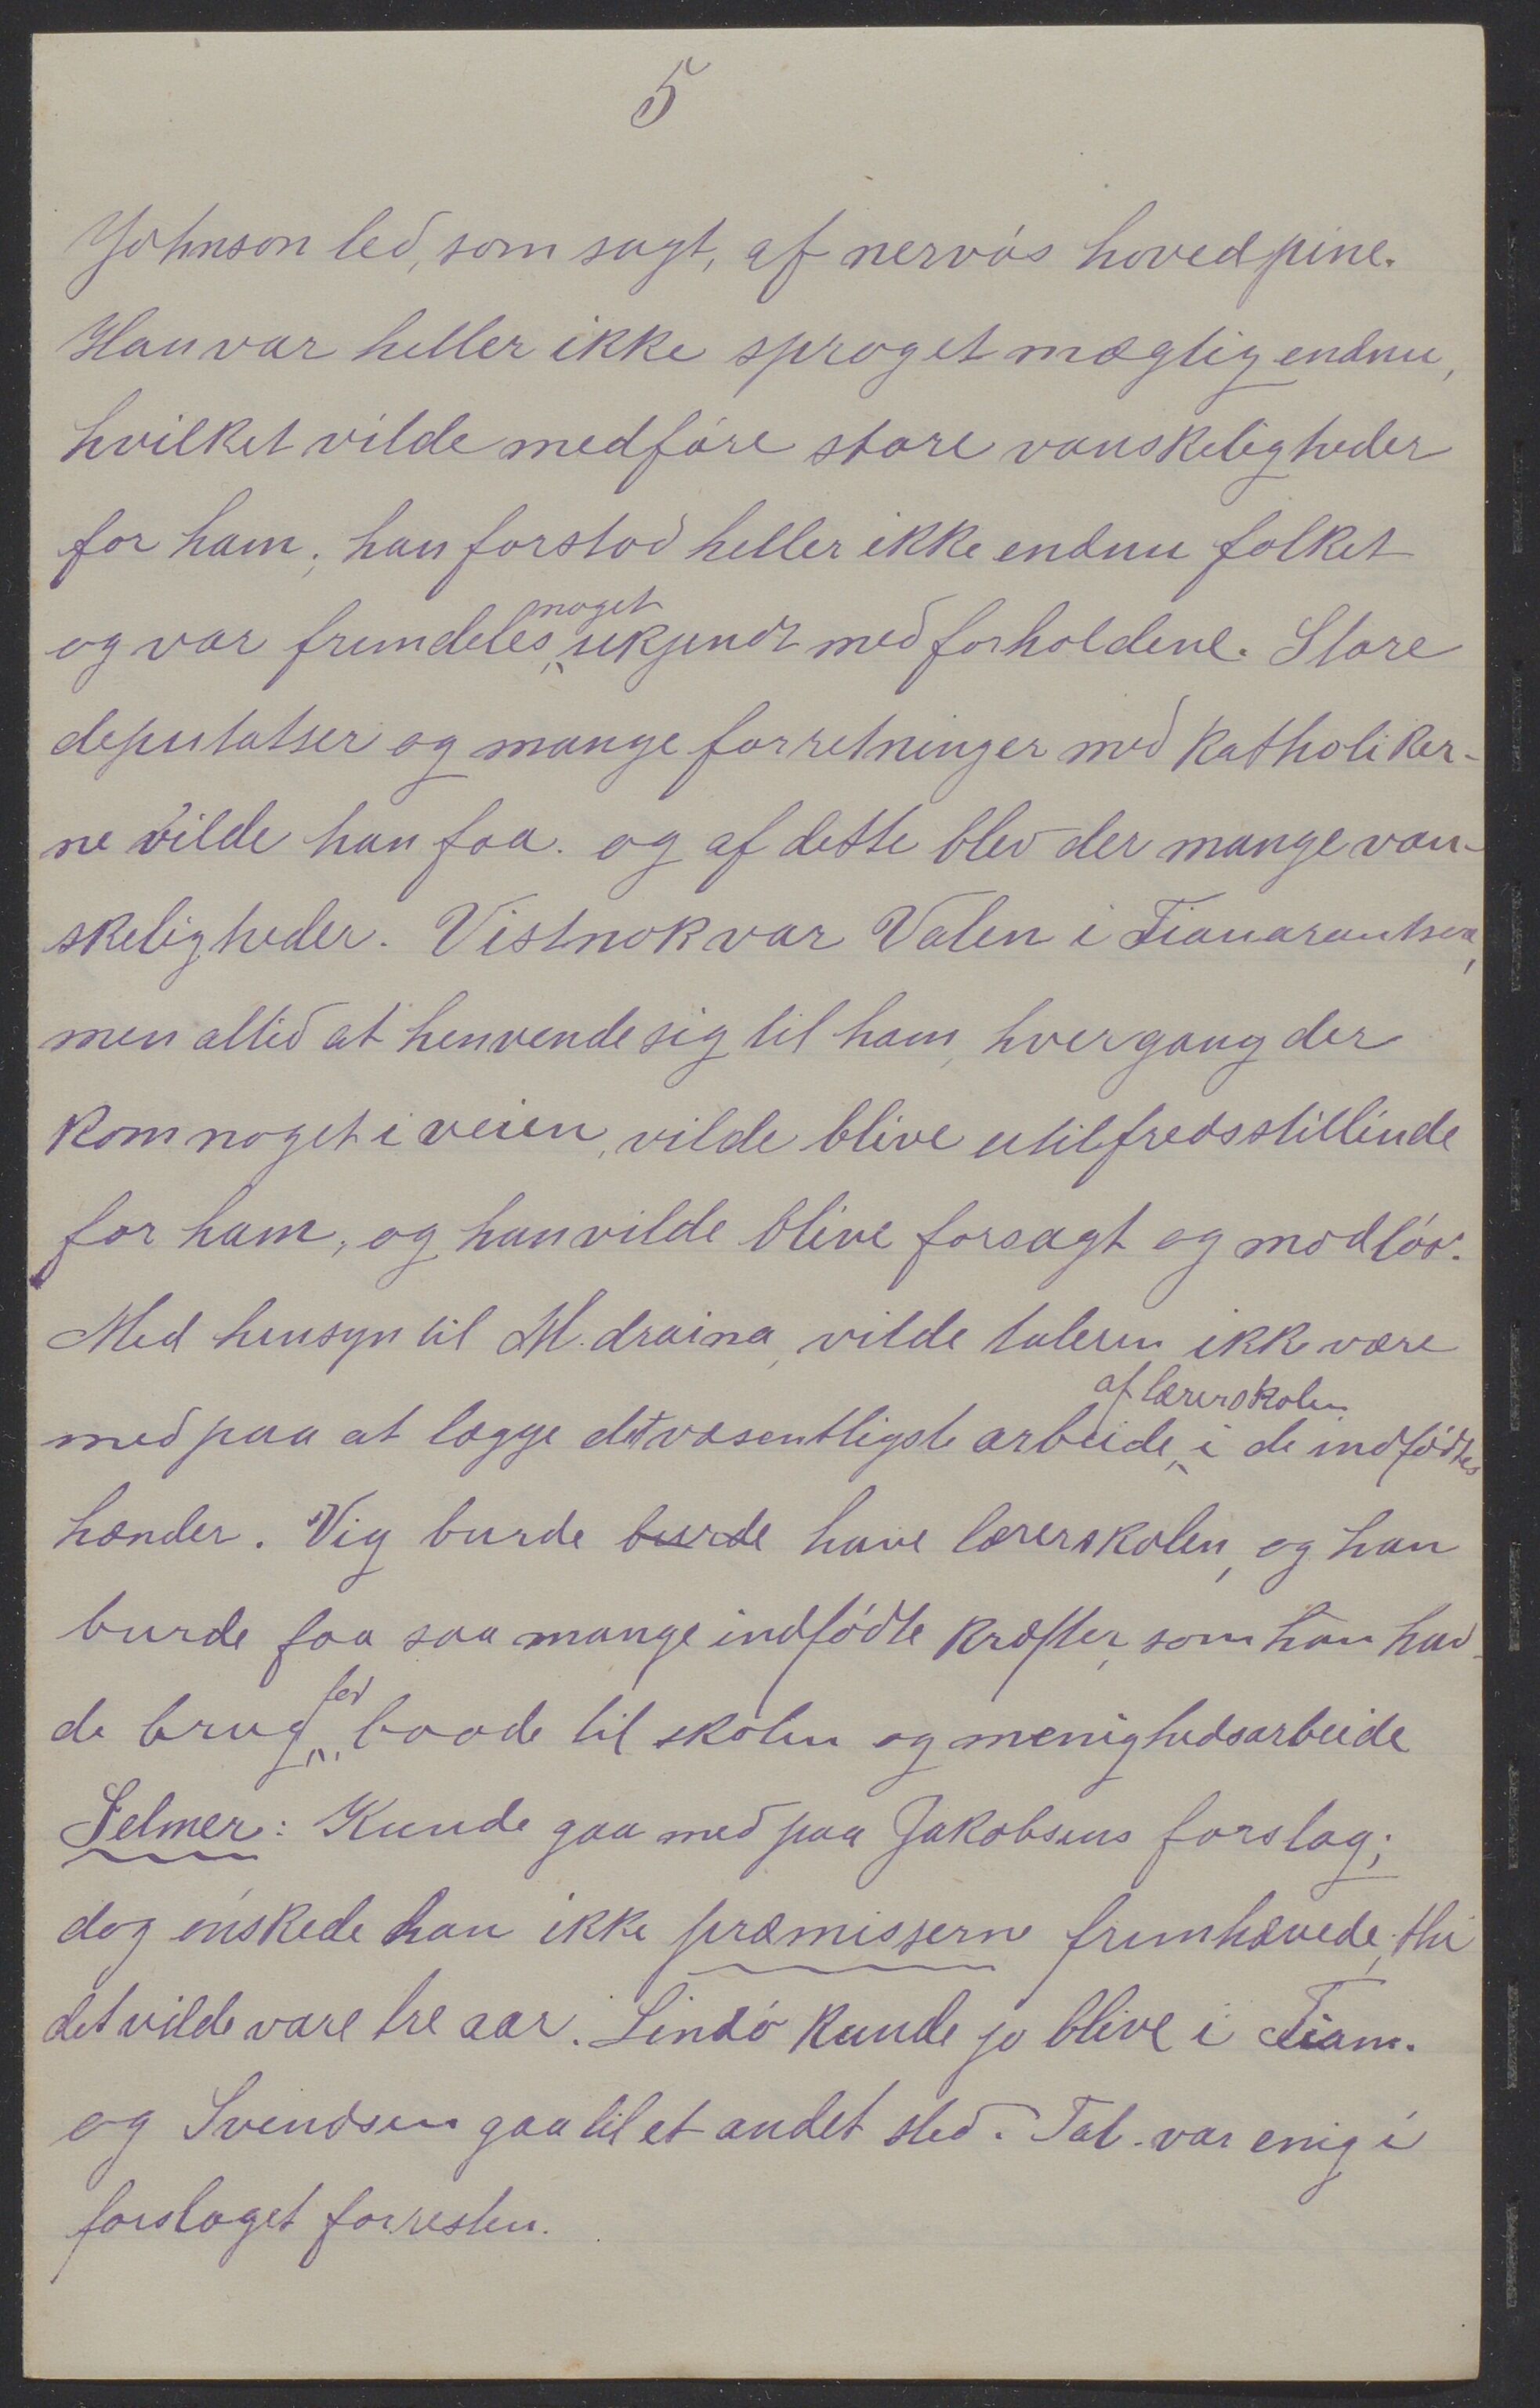 5
Johnson led, som sagt, af nervøs hovedpine.
Han var heller ikke sproget mægtig endnu,
hvilket vilde medføre store vanskeligheder
for ham; han forstod heller ikke endnu folket
og var fremdeles noget ukjendt med forholdene. Store
deputatser og mange forretninger med katholiker-
ne vilde han faa. og af dette blev der mange van-
skeligheder. Vistnok var Valen i Fianarantsoa,
men altid at henvende sig til ham, hvergang der
kom noget i veien, vilde blive utilfredsstillende
for ham, og han vilde blive forsagt og modløs.
Med hensyn til M.draina, vilde taleren ikke være
med paa at lægge det væsentligste arbeide af lærerskolen i de indfødtes
hænder. Vig burde burde have lærerskolen, og han
burde faa saa mange indfødte kræfter, som han hav-
de brug for baade til skolen og menighedsarbeide
Selmer: Kunde gaa med paa Jakobsens forslag;
dog ønskede han ikke præmisserne fremhævede, thi
det vilde vare tre aar. Lindø kunde jo blive i Fian.
og Svendsen gaa til et andet sted. Tal. var enig i
forslaget forresten.